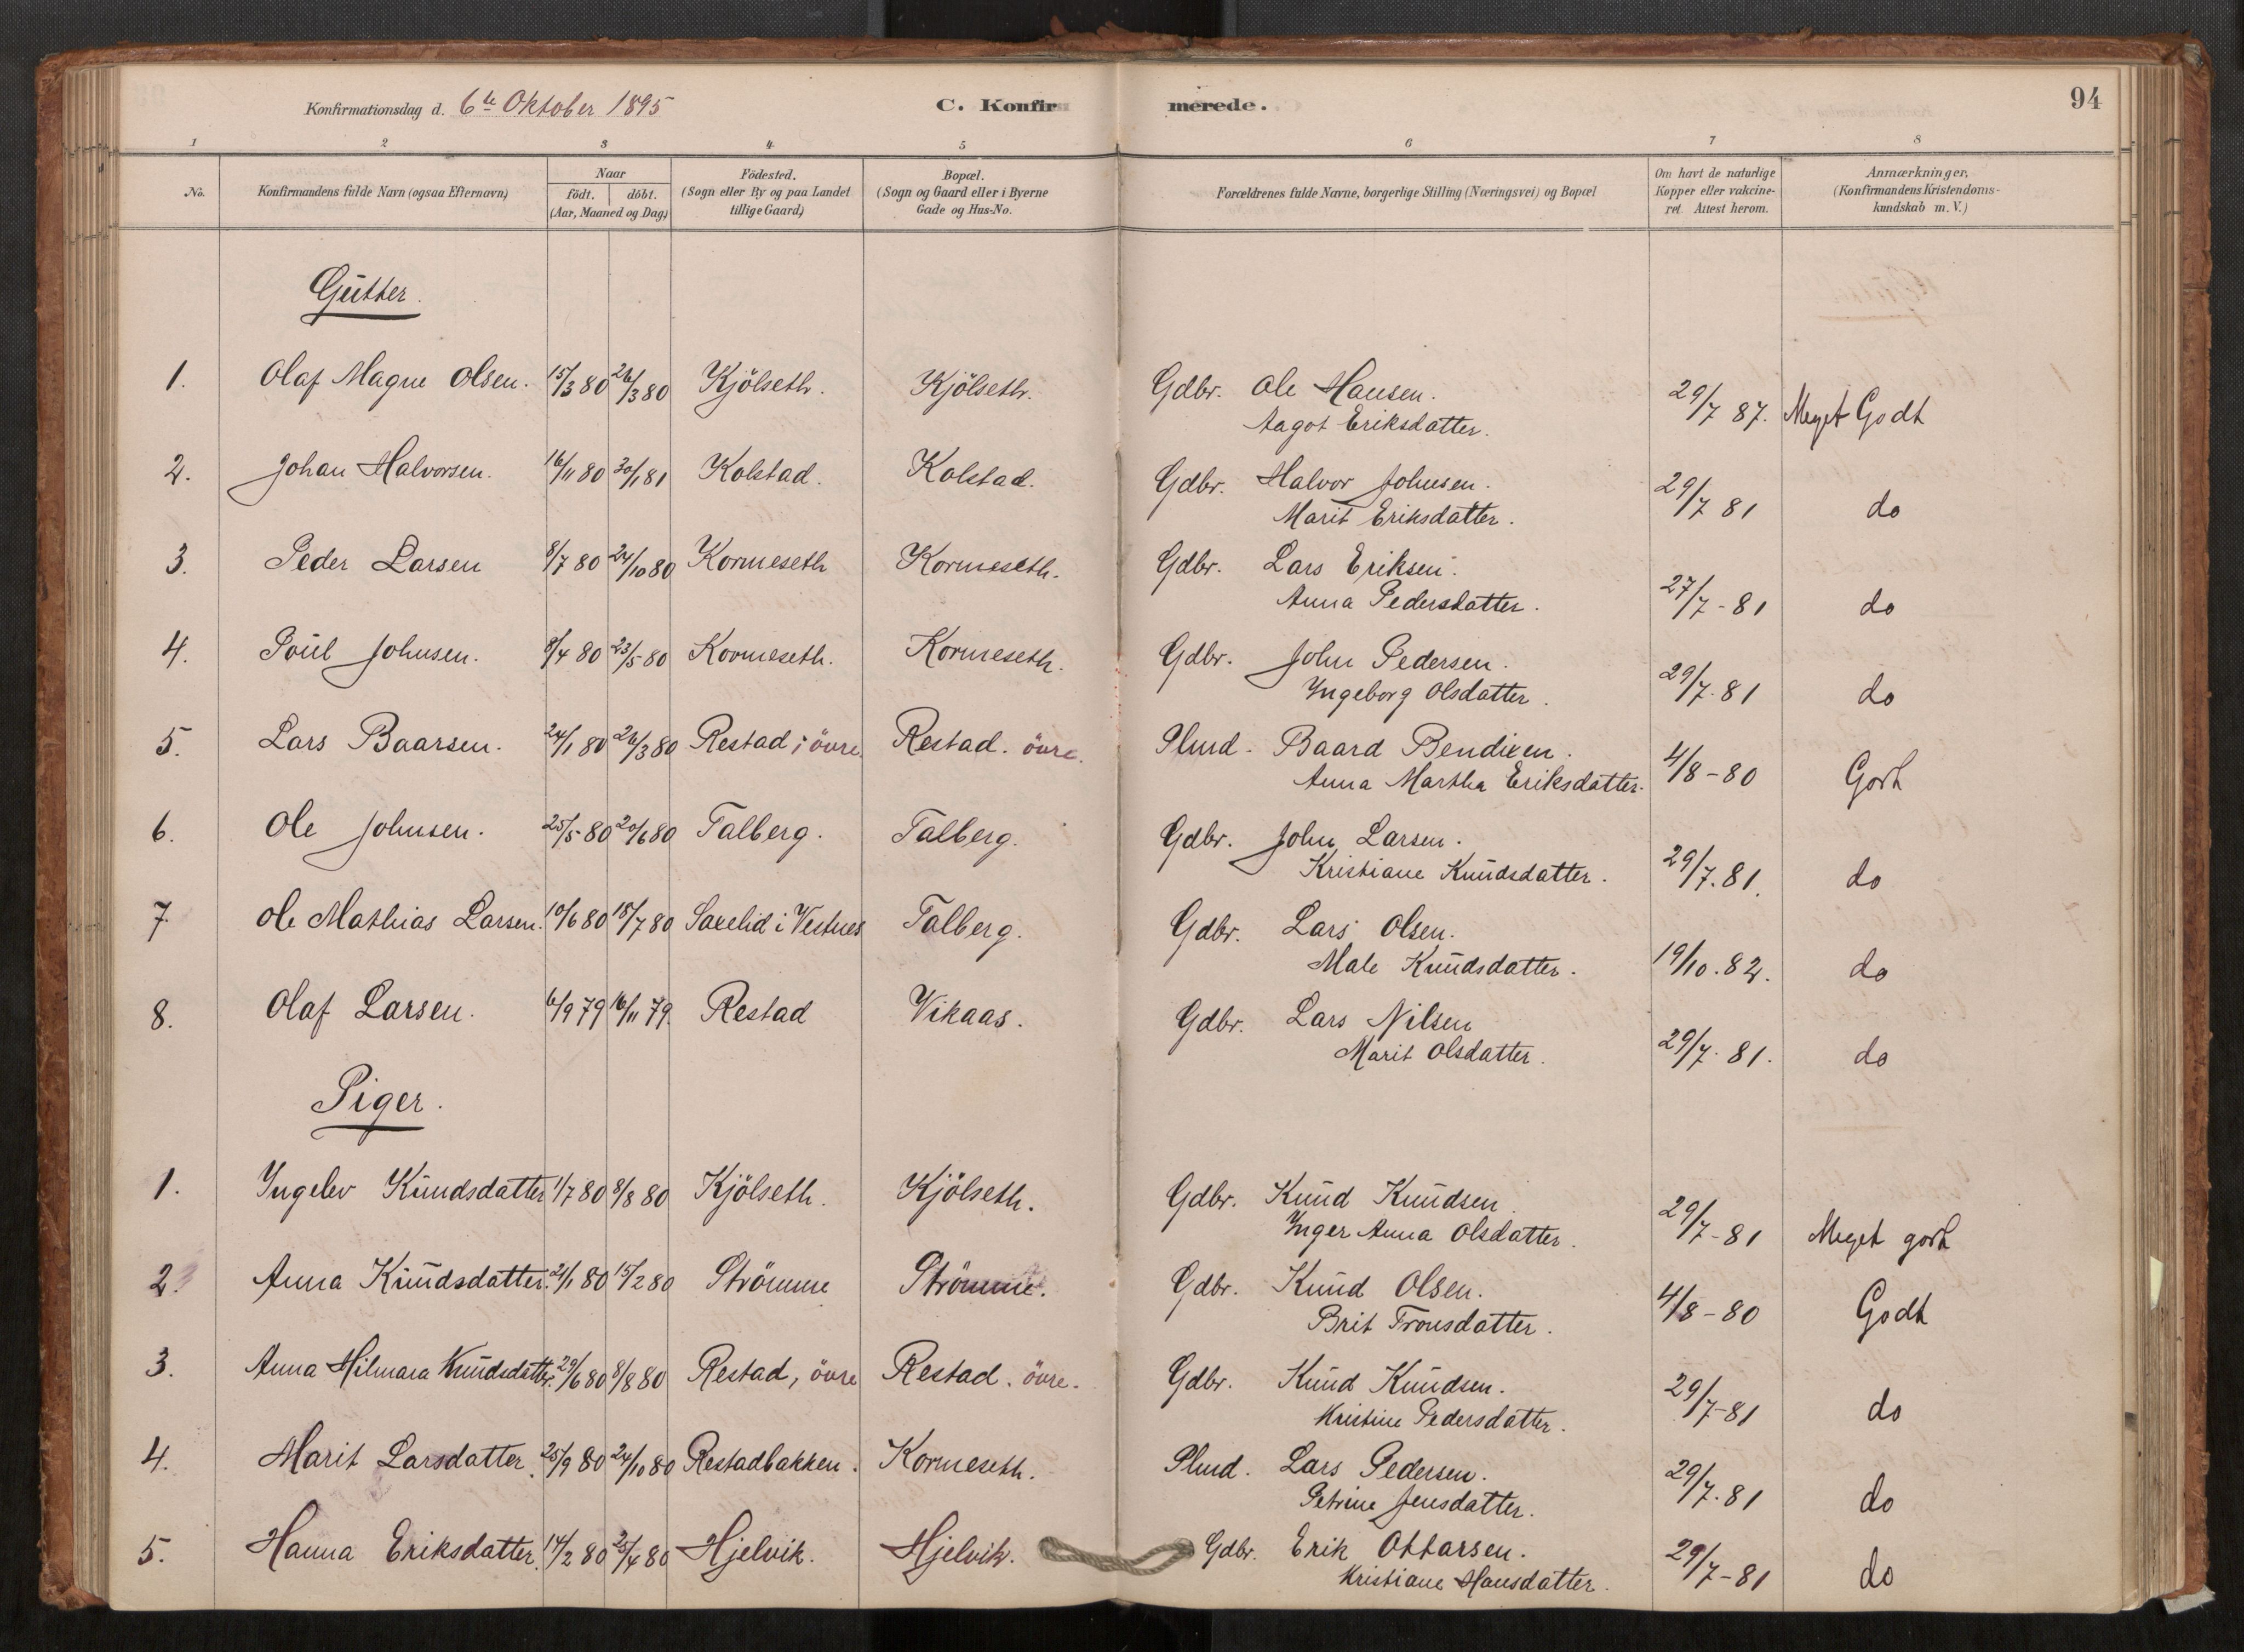 Konfirmationsdag d. 6te Oktober 1895 C. Konfirmerede. 94
1 2 3 4 5 6 7 8
No. Konfirmandens fulde Navn (ogsaa Efternavn) Naar födt. döbt. (Aar, Maaned og Dag) Födested. (Sogn eller By og paa Landet tillige Gaard) Bopæl. (Sogn og Gaard eller i Byerne Gade og Hus-No. Forældrenes fulde Navne, borgerlige Stilling (Næringsvei) og Bopæl Om havt de naturlige Kopper eller vakcineret. Attest herom. Anmærkninger, (Konfirmandens Kristendomskundskab m. V.)
Gutter.
1. Olaf Magne Olsen. 15/3 80 26/3 80 Kjölseth. Kjölseth. Gdbr. Ole Hansen. 29/7 87. Meget Godt
Aagot Eriksdatter.
2. Johan Halvorsen. 16/11 80 30/1 81 Kolstad. Kolstad. Gdbr. Halvor Johnsen. 29/7 81 do
Marit Eriksdatter.
3. Peder Larsen 8/7 80 24/10 80 Kormeseth Kormeseth. Gdbr. Lars Eriksen. 27/7-81 do
Anna Pedersdatter.
4. Poul Johnsen. 8/4 80 23/5 80 Kormeseth. Kormeseth. Gdbr. John Pedersen. 29/7.81 do
Ingeborg Olsdatter.
5. Lars Baarsen. 24/1 80 26/3 80 Restad; övre. Restad. övre. Plmd. Baard Bendixen. 4/8-80 Godt
Anna Martha Eriksdatter.
6. Ole Johnsen. 25/5 80 20/6 80 Talberg. Talberg. Gdbr. John Larsen. 29/7.81. do
Kristiane Knudsdatter.
7 Ole Mathias Larsen. 10/6 80 18/7 80 Saxelid i Vestnes Talberg. Gdbr. Lars Olsen. 19/10.82. do
Male Knudsdatter.
8. Olaf Larsen. 6/9 79 16/11 79. Restad Vikaas. Gdbr. Lars Nilsen 29/7.81. do
Marit Olsdatter.
Piger.
1. Ingelev Knudsdatter 1/7 80 8/8 80 Kjölseth. Kjölseth. Gdbr. Knud Knudsen 29/7-81 Meget godt
Inger Anna Olsdatter.
2. Anna Knudsdatter. 21/1 80 15/2 80 Strömme Strömme. Gdbr. Knud Olsen. 4/8-80 Godt
Brit Tronsdatter.
3. Anna Hilmara Knudsdatter. 29/6 80 8/8 80 Restad, övre Restad. övre. Gdbr. Knud Knudsen. 29/7-81 do
Kristine Pedersdatter.
4. Marit Larsdatter. 25/9 80 24/10 80 Restadbakken. Kormeseth. Plmd. Lars Pedersen. 29/7.81 do
Petrine Jensdatter.
5. Hanna Eriksdatter. 14/2 80 25/4 80 Hjelvik. Hjelvik. Gdbr. Erik Ottarsen. 29/7-81 do
Kristiane Hansdatter.